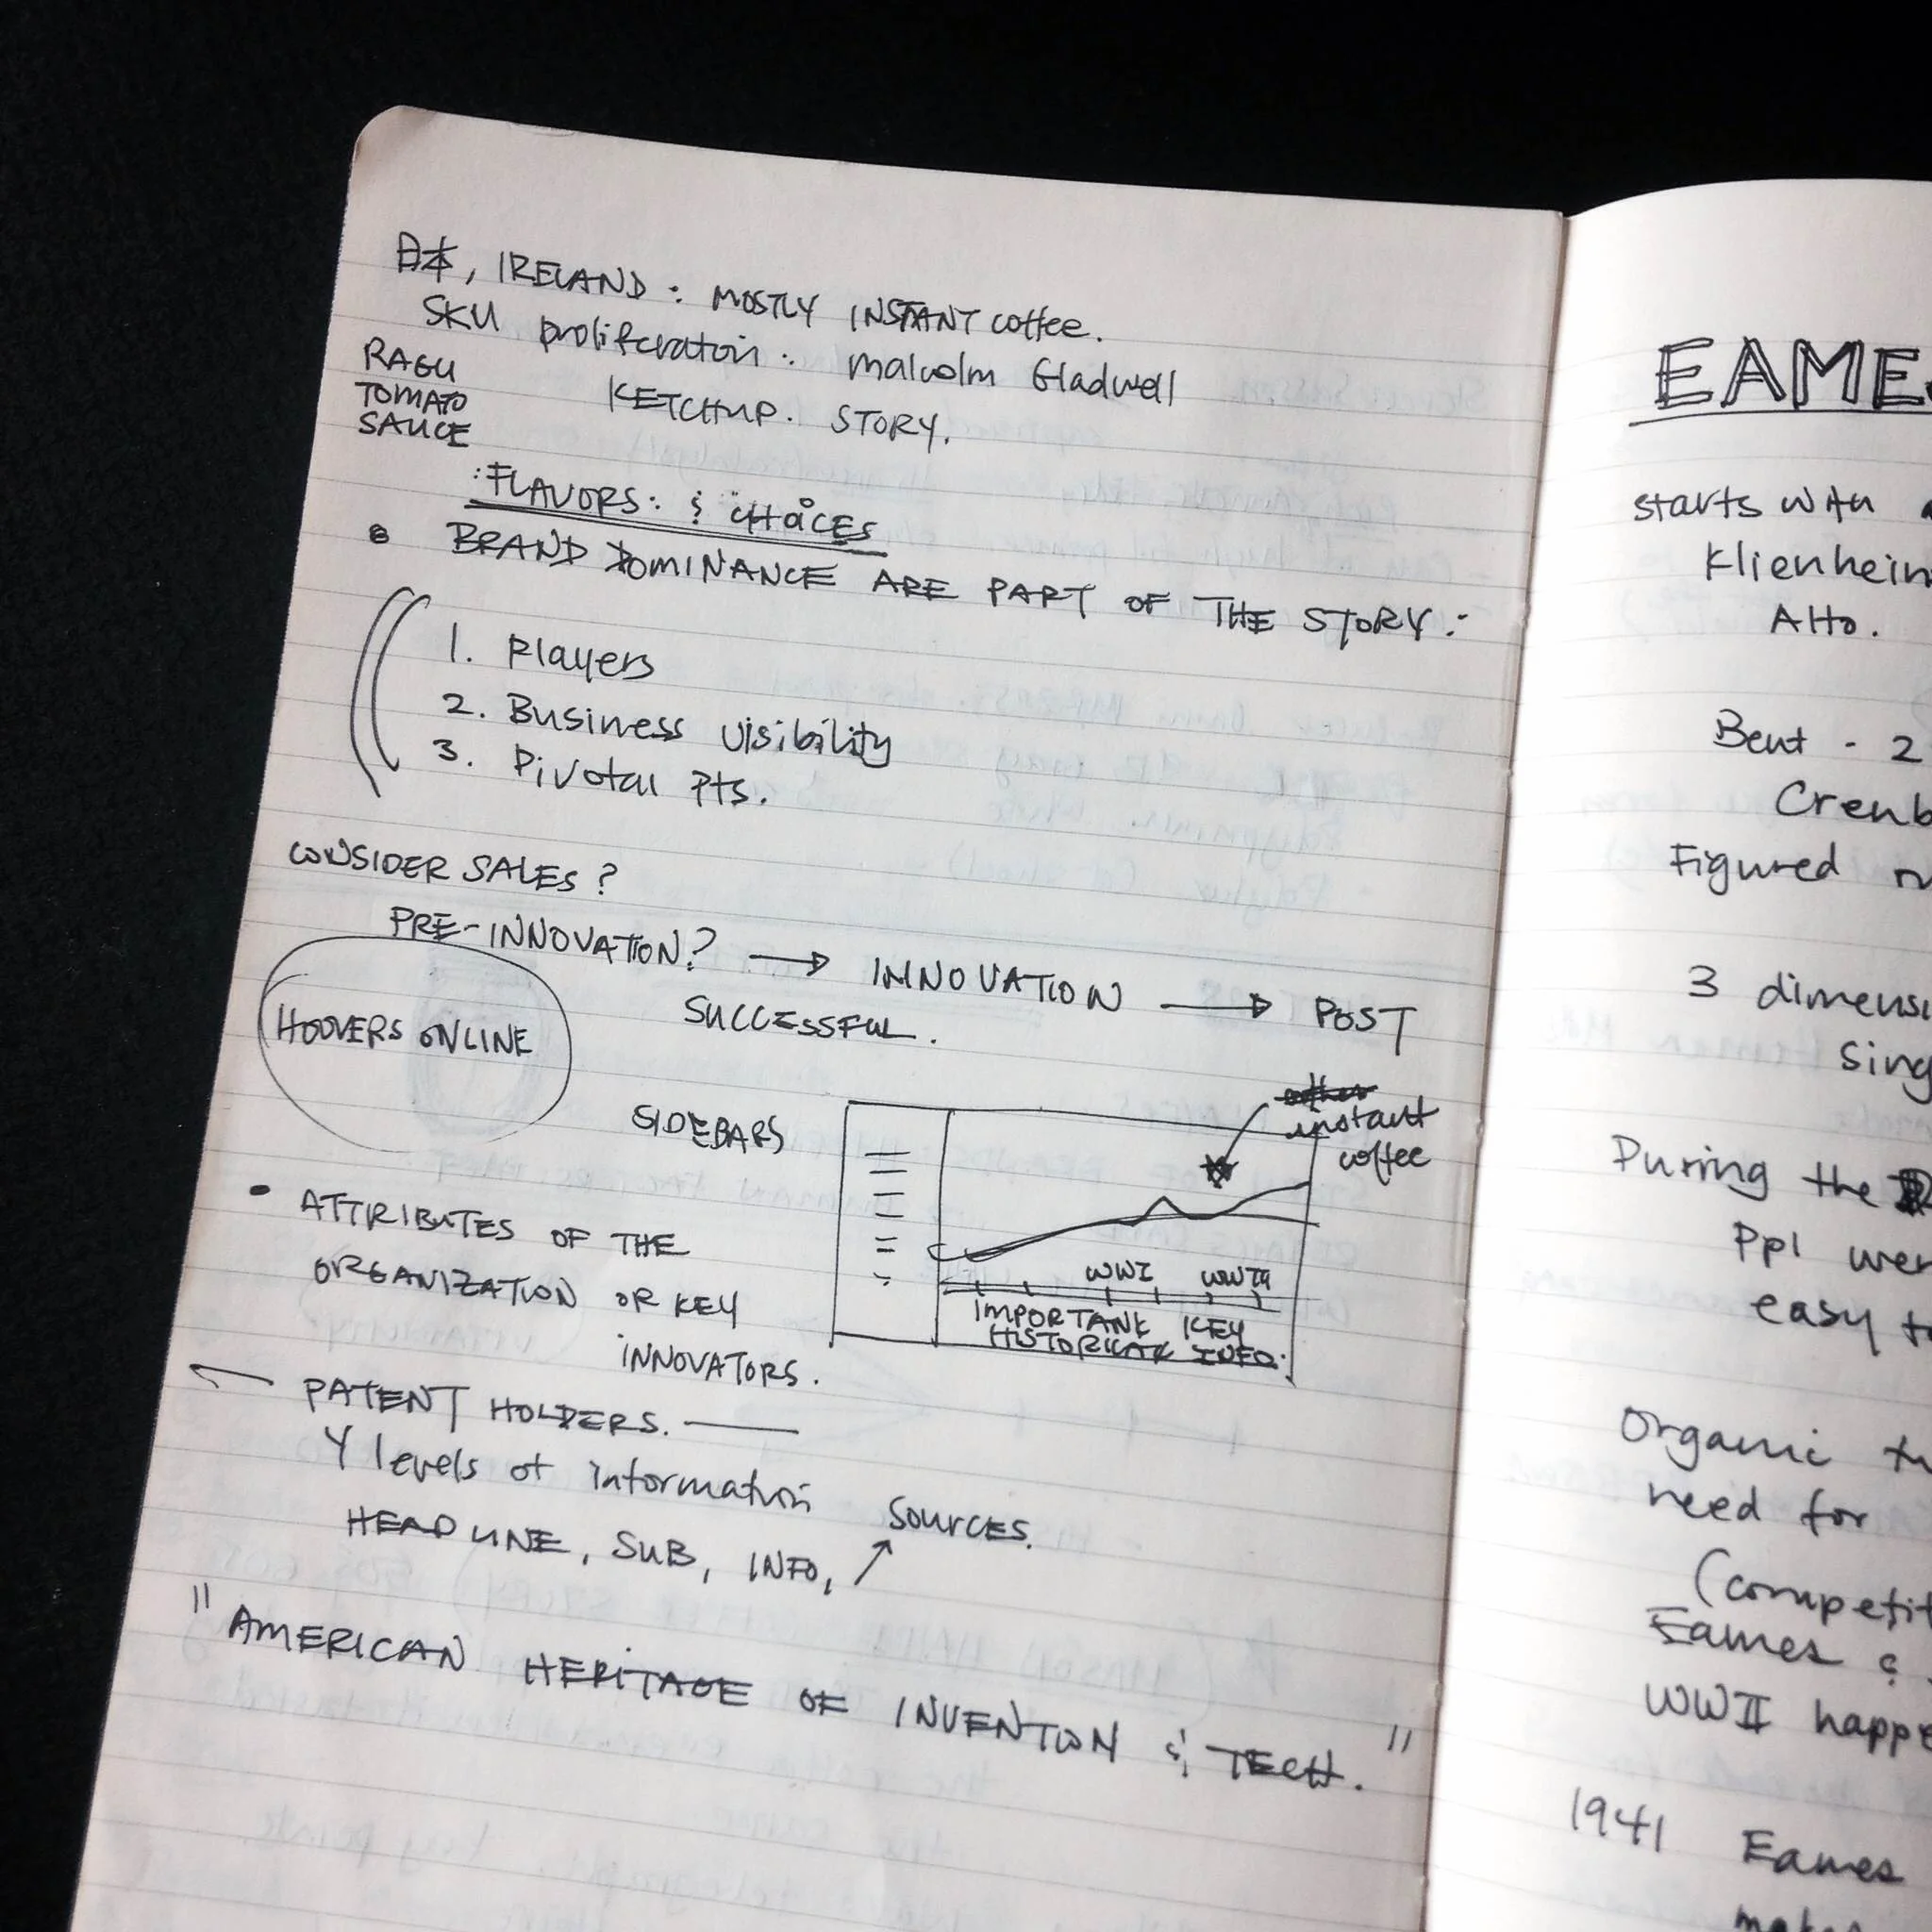 日本, IRELAND : MOSTLY INSTANT coffee.
SKU proliferation : Malcolm Gladwell
KETCHUP. STORY.
RAGU
TOMATO
SAUCE
: FLAVORS: & CHOICES
BRAND DOMINANCE ARE PART OF THE STORY :
1. Players
2. Business visibility
3. Pivotal Pts.
CONSIDER SALES ?
PRE-INNOVATION? → INNOVATION → POST
SUCCESSFUL.
HOOVERS ONLINE
SIDEBARS
instant
coffee
WWI
IMPORTANT KEY
HISTORICAL INFO.
• ATTRIBUTES OF THE
ORGANIZATION OR KEY
INNOVATORS.
PATENT HOLDERS.
4 levels of information
HEADLINE, SUB, INFO, ↗ Sources.
"AMERICAN HERITAGE OF INVENTION & TECH."
EAMES
starts with
Alto.
Bent - 2
Figured
3
During the
Ppl
easy
Organic
need for
Eames &
WWII
1941 Eames